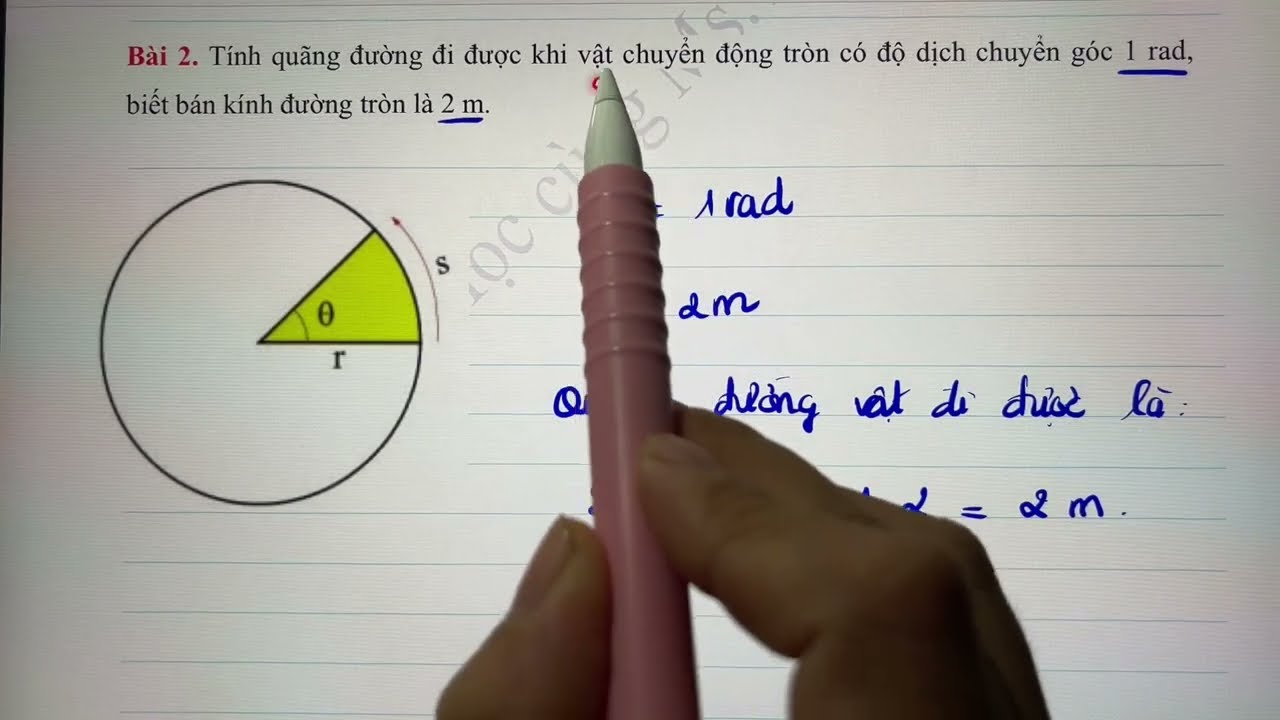 Bài 2. Tính quãng đường đi được khi vật chuyển động tròn có độ dịch chuyển góc 1 rad,
biết bán kính đường tròn là 2 m.
= 1 rad
s
θ
2m
r
đường vật đi được là:
2 = 2 m.